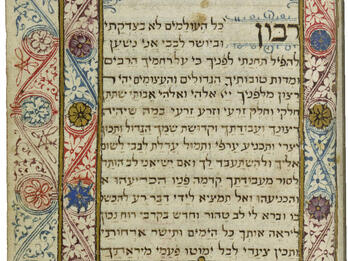 רבון כל העולמים לא בצדקתי
וביושר לבבי אני נשען
להפיל תחנתי לפניך כי על רחמיך הרבים
ומדות טובותיך הגדולים והעצומים יהי
רצון מלפניך ייי אלהי ואלהי אבותי שתתן
חלקי וחלק זרעי וזרע זרעי במה שיהיה
רצונך ועבודתך וקדושת שמך הגדול
יצרי ותכניע ערפי ותמול ערלת לבבי לשוב
אליך ולהשתעבד לך ואם ישיאני לב
לסור מעבודתך קדמה פניו הכריעהו
והכניעהו ואל תמציא לידי דבר רע
בו וברא לי לב טהור וחדש בקרבי רוח נכון
ליראה אותך כל הימים ותישר ארחותי
ותכין צעדי לבל ימוטו פעמי מיראתך